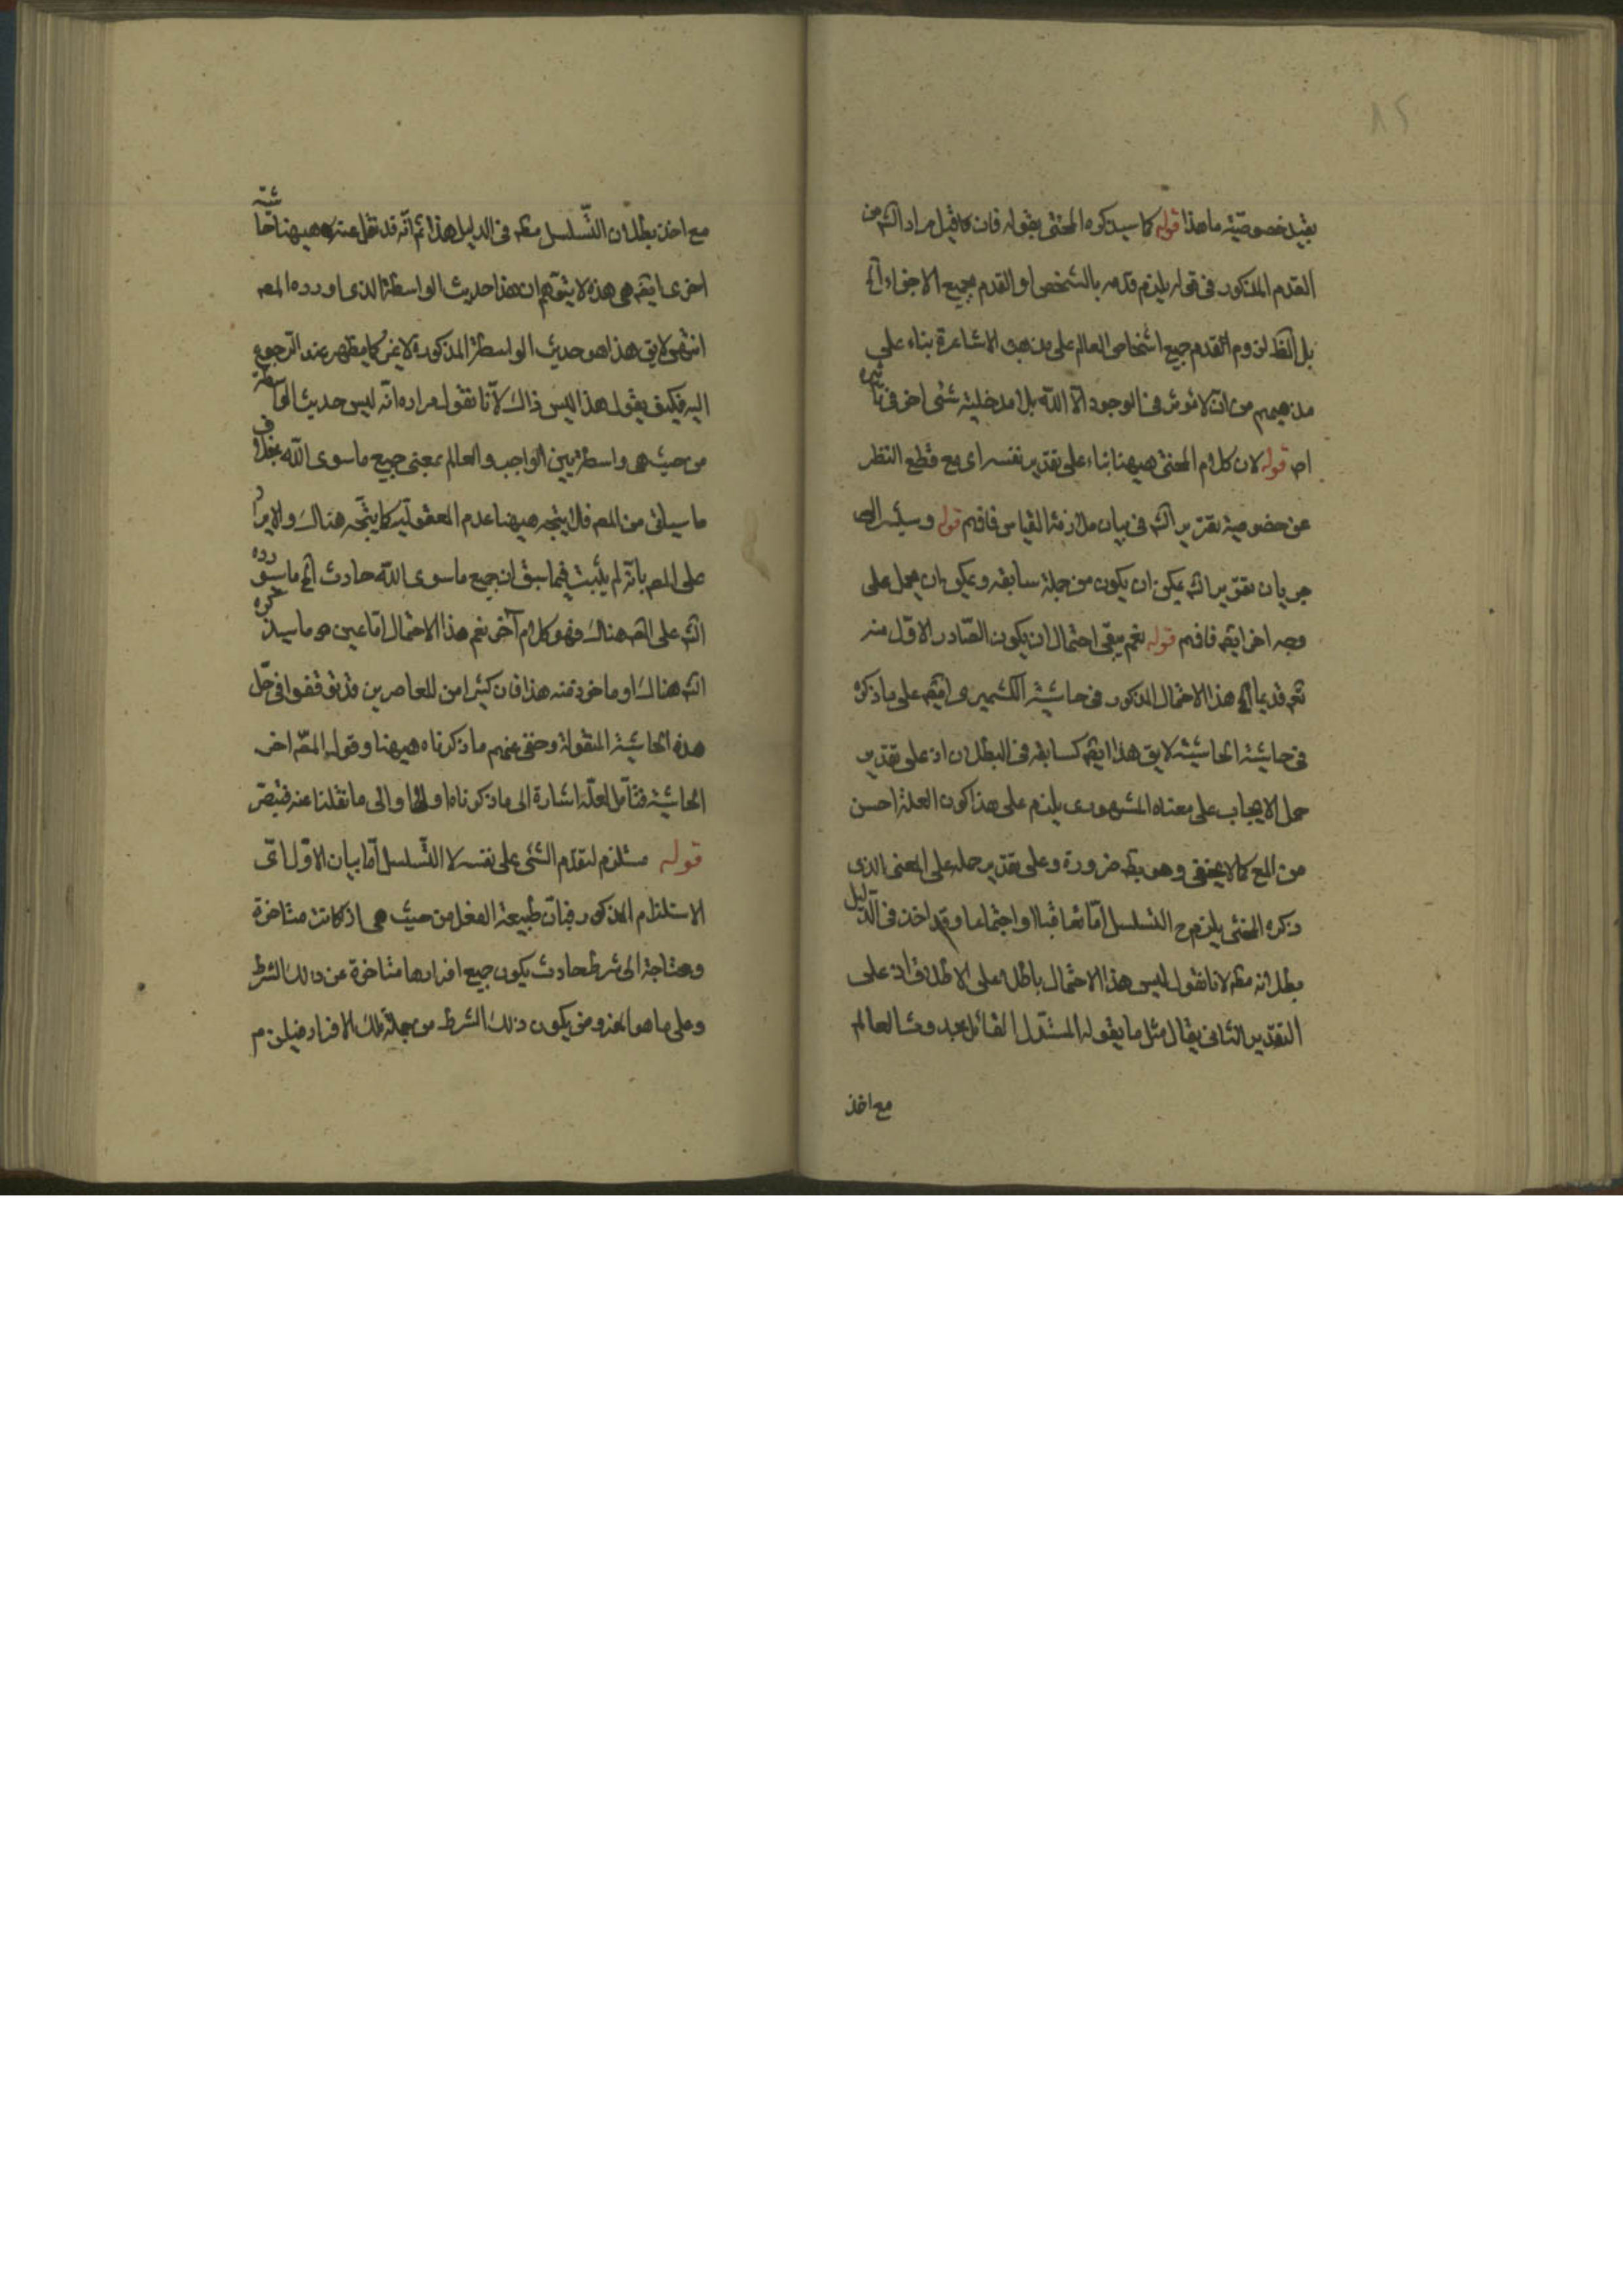 ٨٢
بقيد خصوصيّة ما هذا قوله كما سيذكره المحشى بقوله فان كما قيل مراد الش من
القدم المذكور فى قوله يلزم قدمه بالشخص او القدم بجميع الاجزاء الخ
بل الظ لزوم القدم جميع اشخاص العالم على مذهب الاشاعرة بناء على
مذهبهم من ان لا مؤثر فى الوجود الا الله بلا مدخلية شئى اخر فى تاثيره
اصـ قوله لان كلام المحشى ههنا بناء على تقدير نفسه اى مع قطع النظر
عن خصوصية تقرير الش فى بيان ملازمة القياس فافهم قوله وسيشير الى
جريان تقرير الش يمكن ان يكون من جملة سابقه ويمكن ان يحمل على
وجه اخر ايضه فافهم قوله نعم يبقى احتمال ان يكون الصّادر الاوّل منه
تعـ قديما الخ هذا الاحتمال المذكور فى حاشية الكشميرى ايضه على ما ذكره
فى حاشية الحاشية لا يق هذا ايضه كسابقه فى البطلان اذ على تقدير
حمل الايجاب على معناه المشهورى يلزم على هذا كون العلة احسن
من المع كما لا يخفى وهو بط ضرورة وعلى تقدير حمله على المعنى الذى
ذكره المحشى يلزم ح التسلسل امّا تعاقبا او اجتماعا وقد اخذ فى الدّليل
بطلانه مطـ لانا نقول ليس هذا الاحتمال باطلا على الاطلاق اذ على
التقدير الثانى يقال مثل ما يقوله المستدل القائل بحدوث العالم
مع اخذ
مع اخذ بطلان التّسلسل مطـ فى الدليل هذا ثم انّه قد نقل عنه ههنا حاشية
اخرى ايضه هى هذه لا يتوهم ان هذا حديث الواسطة الذى اورده المصـ
انتهى لا يق هذا هو حديث الواسطة المذكورة لا غير كما يظهر عند الرجوع
اليه فكيف يقول هذا ليس ذاك لانّا نقول مراده انّه ليس حديث الواسطة
من حيث هى واسطة بين الواجب والعالم بمعنى جميع ما سوى الله بخلاف
ما سياتى من المصـ فلا يتجه ههنا عدم المعقولية كما يتّجه هناك والايراد
على المصـ بانّه لم يثبت فيما سبق ان جميع ما سوى الله حادث الخ ما سيورده
الش على المصـ هناك وفهو كلام آخر نعم هذا الاحتمال امّا عين هو ما سيذكره
الش هناك او ماخوذ منه هذا فان كثيرا من المعاصرين قد توقفوا فى حلّ
هذه الحاشية المنقولة وخفى عنهم ما ذكرناه ههنا وقول المصّ اخر
الحاشية فتأمل لعلّه اشارة الى ما ذكرناه اولا او الى ما نقلنا عنه فتبصّر
قوله مستلزم لتقدّم الشئى على نفسه لا التّسلسل امّا بيان الاوّل اى
الاستلزام المذكور فبان طبيعة الفعل من حيث هى اذ كانت متاخرة
ومحتاجة الى شرط حادث يكون جميع افرادها متاخرة عن ذلك الشرط
وعلى ما هو المفروض يكون ذلك الشرط من جملة تلك الافراد فيلزم